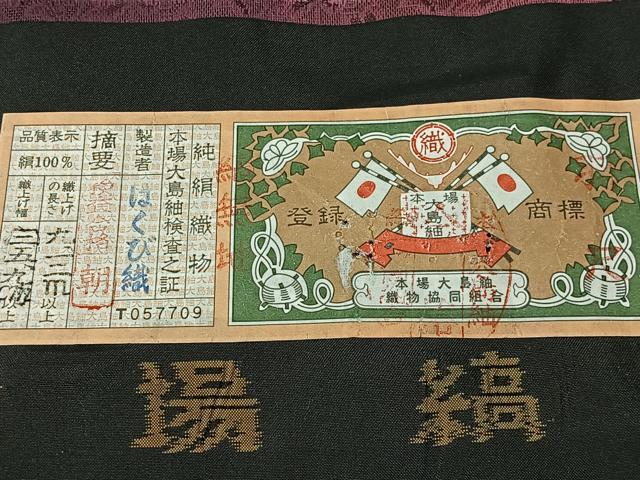 純絹織物
本場大島紬検査之証
製造者
はくび織
T057709
摘要
朝
品質表示
絹100%
織上げの長さ
以上
織上げ幅
以上
織
本場
大島
紬
登録
商標
本場大島紬
織物協同組合
場
縞